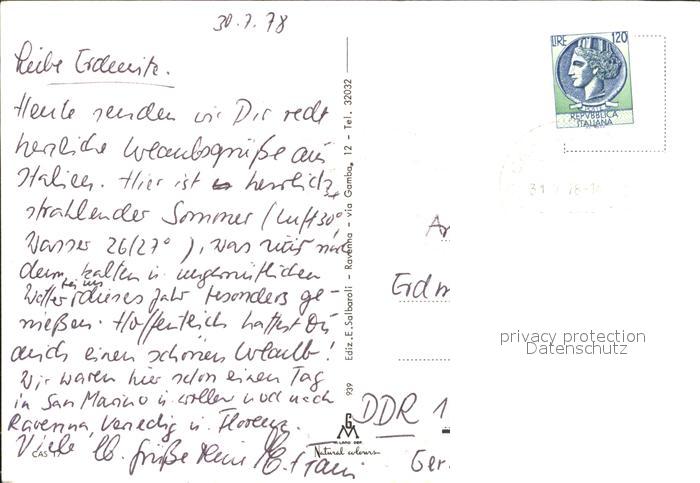 30.7.78
Liebe
Heute senden wir Dir recht
herzliche Urlaubsgrüße aus
Italien. Hier ist herrlich
strahlender Sommer (Luft 30°
Wasser 26/27°), was wir nach
dem kalten u. ungemütlichen
Wetter bei uns dieses Jahr besonders ge-
nießen. Hoffentlich hattest Du
auch einen schönen Urlaub!
Wir waren hier schon einen Tag
in San Marino u. wollen noch nach
Ravenna, Venedig u. Florenz.
Viele lb. Grüße
CAS
Ediz. E. Salbaroli - Ravenna - via Gamba, 12 - Tel. 32032
939
Natural colours
LIRE 120
POSTE
REPVBBLICA
ITALIANA
Erdm
DDR 1
Ger
privacy protection
Datenschutz